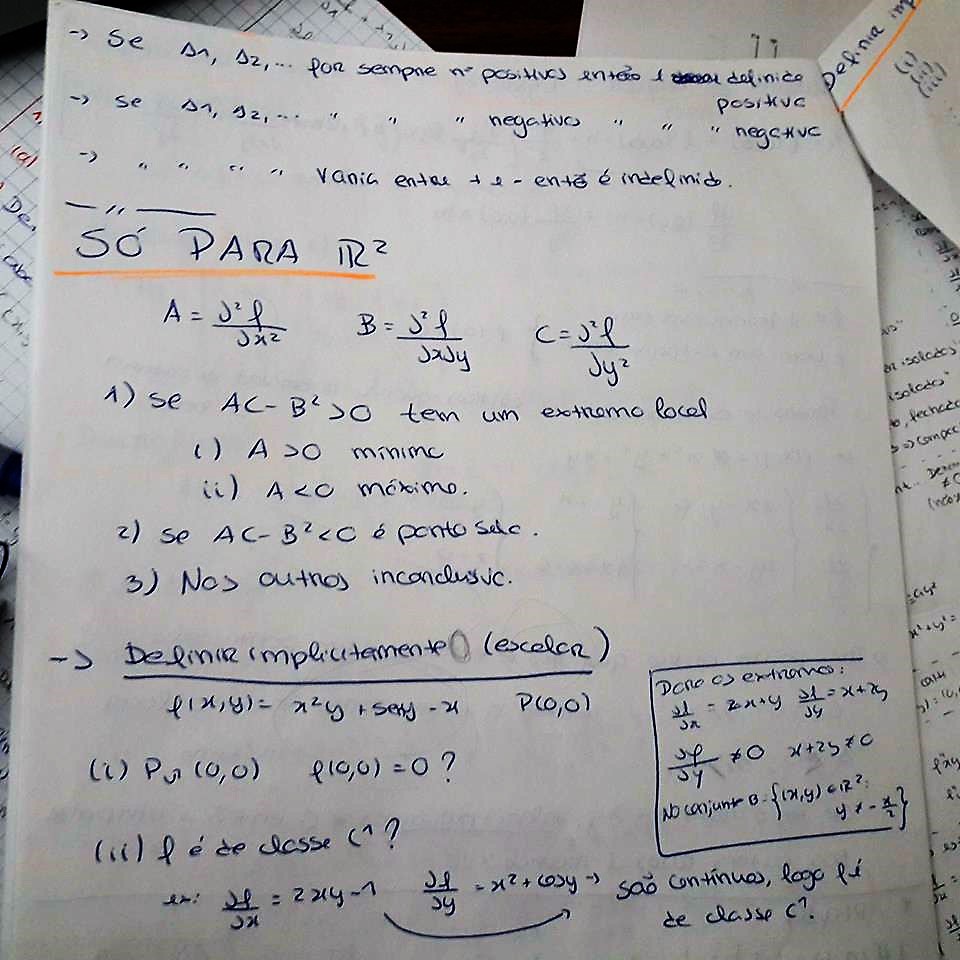 -> Se Δ1, Δ2,... for sempre nº positivos então é definido
positivo
-> Se Δ1, Δ2,... " " " negativo " " " negativo
-> " " " " Varia entre + e - então é indefinido.
— " —
SÓ PARA ℝ²
A = ∂²f/∂x² B = ∂²f/∂x∂y C = ∂²f/∂y²
1) Se AC - B² > 0 tem um extremo local
i) A > 0 mínimo
ii) A < 0 máximo.
2) Se AC - B² < 0 é ponto sela.
3) Nos outros inconclusivo.
-> Definir implicitamente (escalar)
f(x,y) = x²y + seny - x P(0,0)
(i) (0,0) f(0,0) = 0 ?
(ii) f é de classe C¹ ?
ex: ∂f/∂x = 2xy - 1 ∂f/∂y = x² + cosy -> São contínuas, logo f é
de classe C¹.
Para os extremos:
∂f/∂x = 2x+y ∂f/∂y = x+2y
∂f/∂y ≠ 0 x+2y ≠ 0
No conjunto B = {(x,y) ∈ ℝ²:
y ≠ -x/2}
Definir
(i)
(ii)
(iii)
isolados"
isolado"